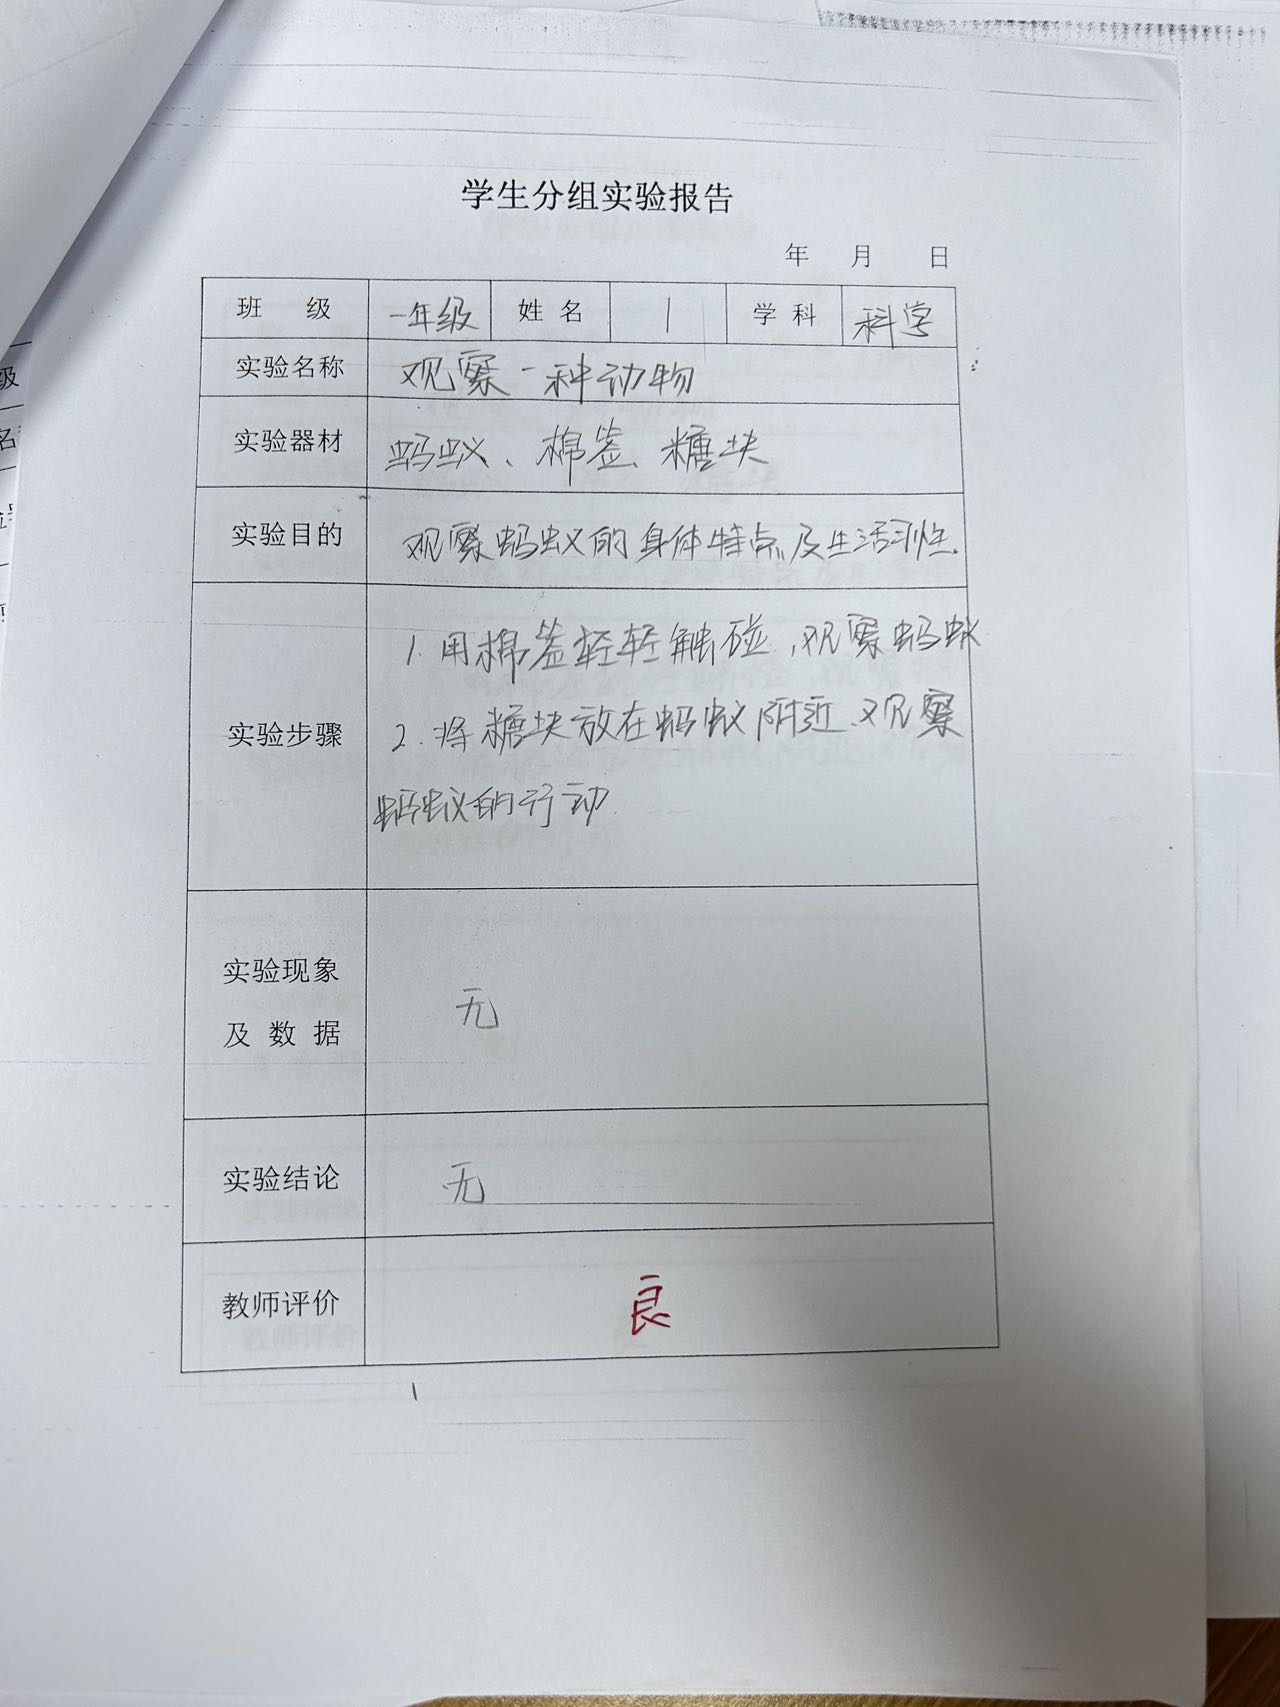 学生分组实验报告
年 月 日
班 级 一年级 姓名 1 学科 科学
实验名称 观察一种动物
实验器材 蚂蚁、棉签、糖块
实验目的 观察蚂蚁的身体特点及生活习性.
1.用棉签轻轻触碰,观察蚂蚁
实验步骤 2.将糖块放在蚂蚁附近、观察
蚂蚁的行动.
实验现象
及数据 无
实验结论 无
教师评价 良
1